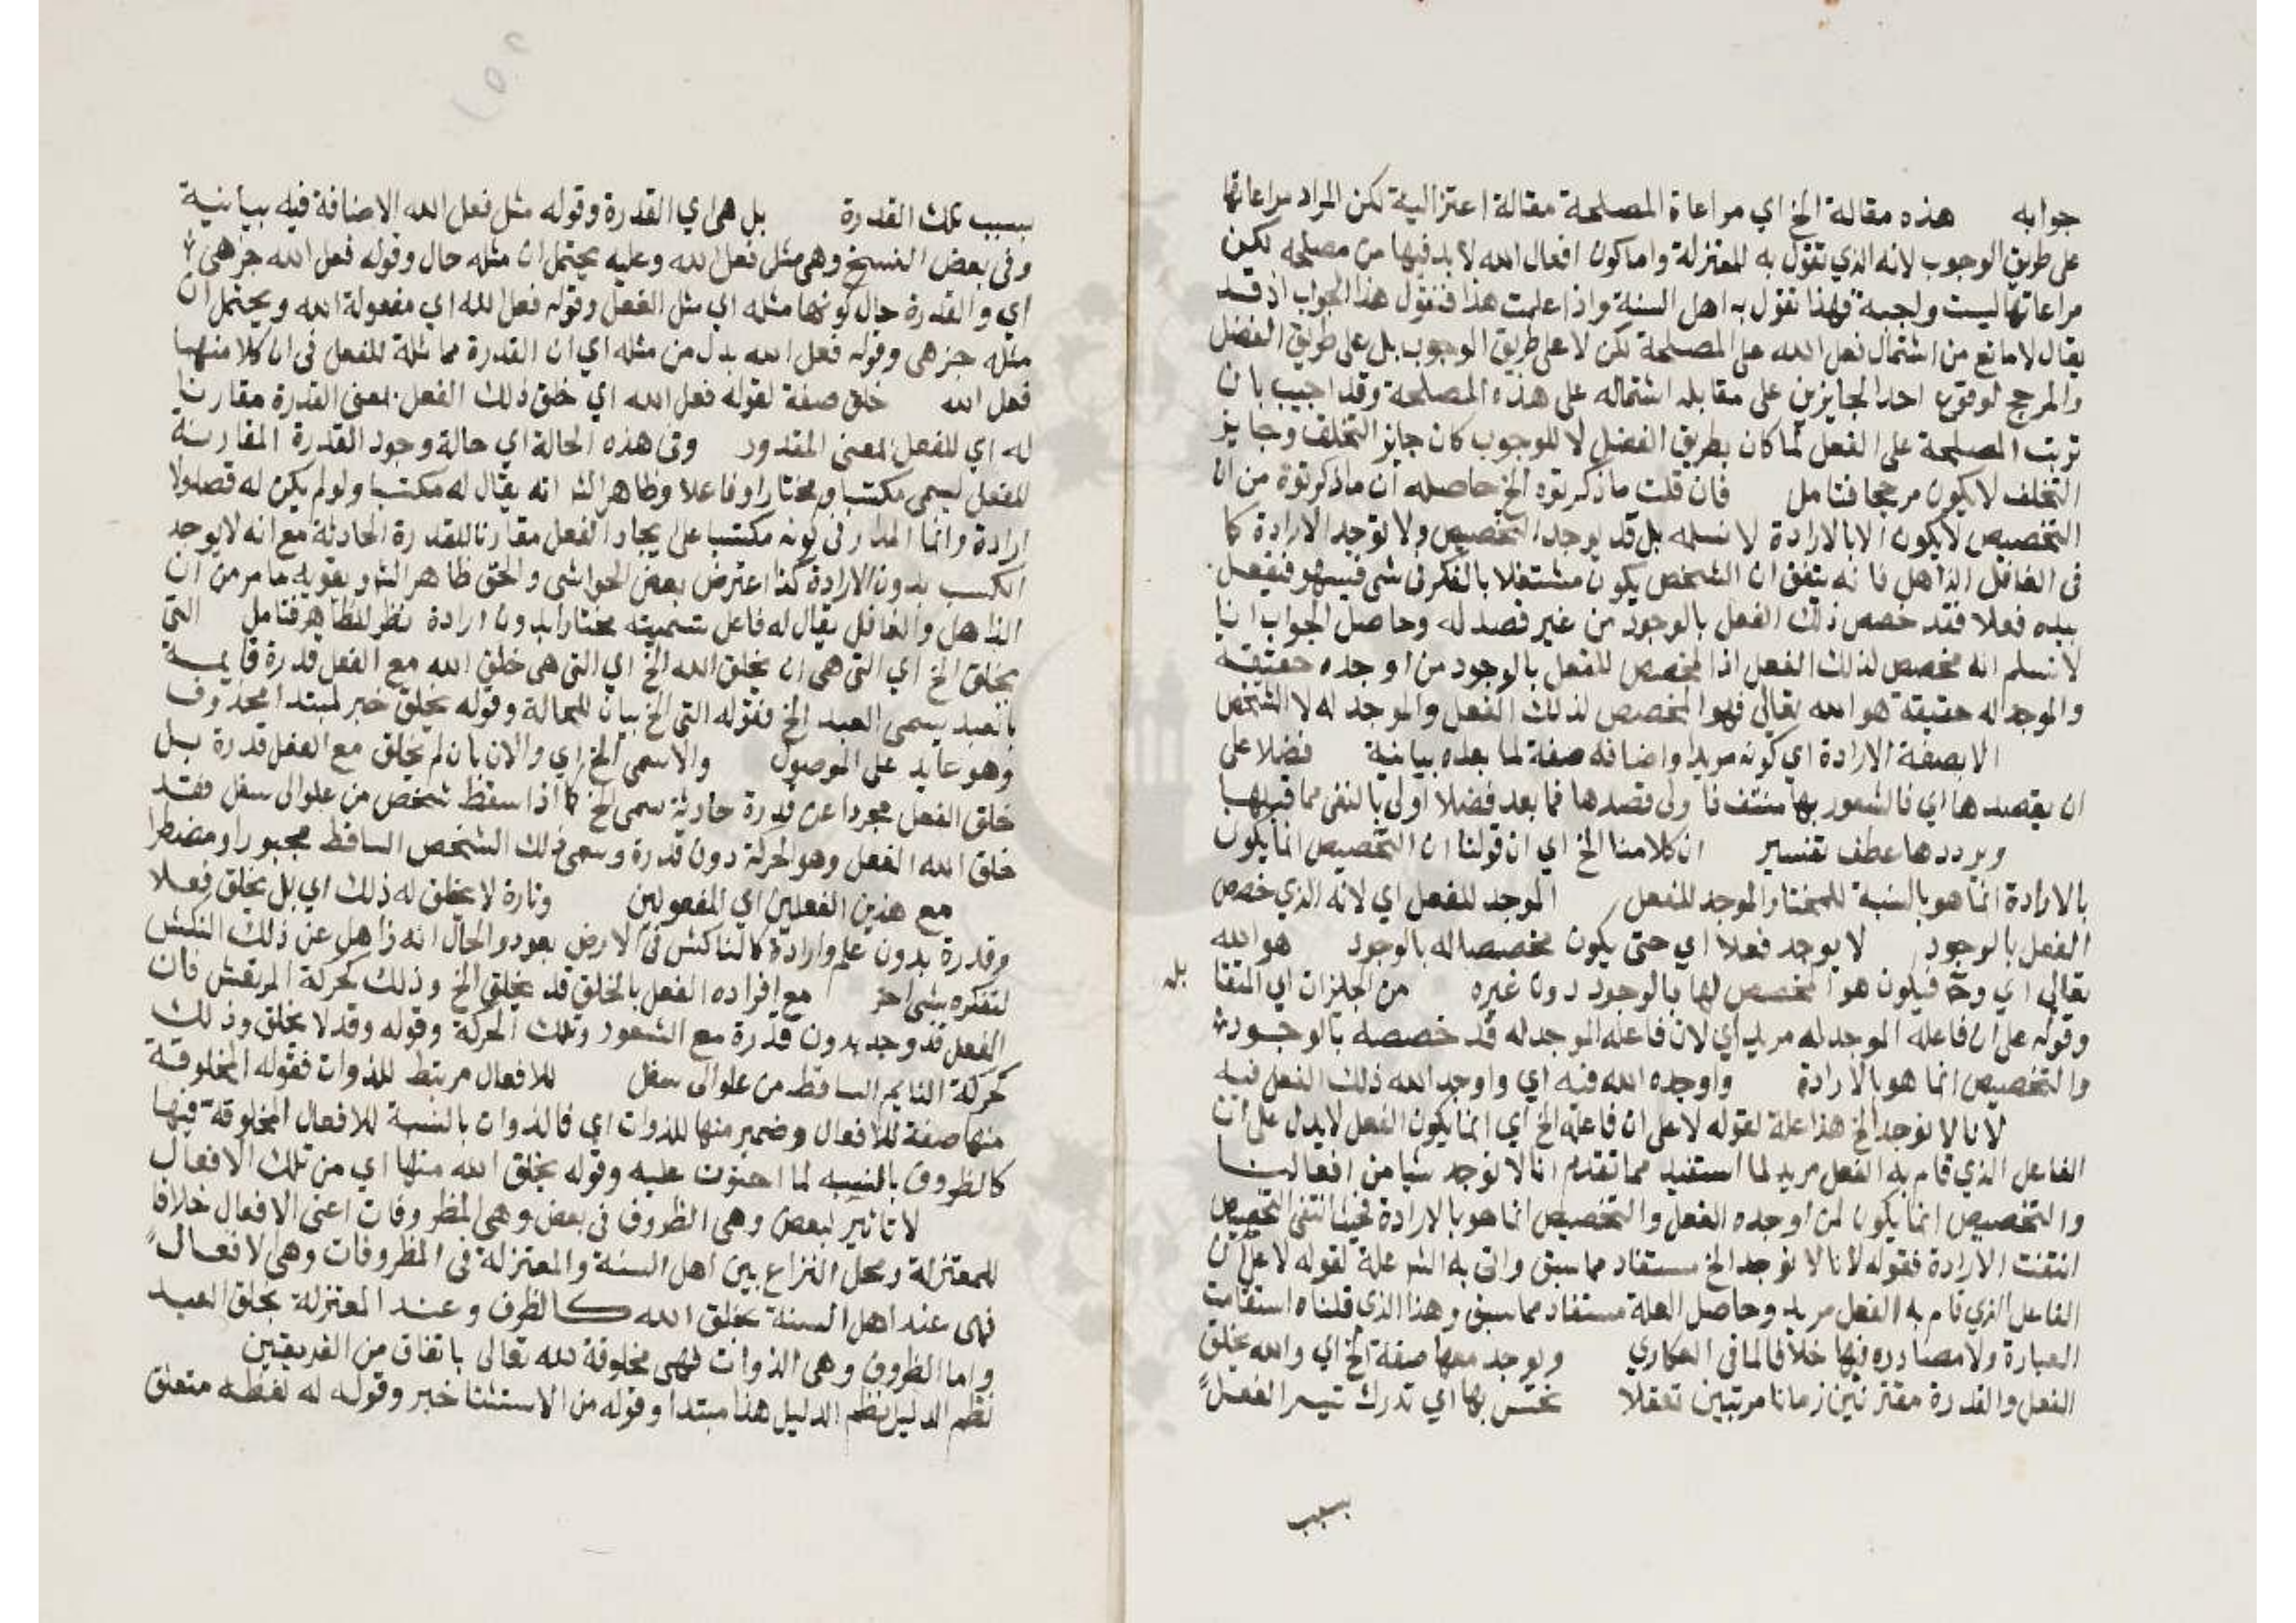 جوابه هذه مقالة الخ اي مراعاة المصلحة مقالة اعتزالية لكن المراد مراعاتها
على طريق الوجوب لانه الذي تقول به المعتزلة واما كون افعال الله لا بد فيها من مصلحه لكن
مراعاتها ليست واجبة فهذا نقول به اهل السنة واذا علمت هذا فنقول هذا الجواب اذ قد
يقال لا مانع من اشتمال فعل الله على المصلحة لكن لا على طريق الوجوب بل على طريق الفضل
والمرجح لوقوع احد الجايزين على مقابله اشتماله على هذه المصلحة وقد اجيب بان
ترتب المصلحة على الفعل لما كان بطريق الفضل لا للوجوب كان جايز التخلف وجايز
التخلف لا يكون مرجحا فتامل فان قلت ما ذكرتوه الخ حاصله أن ما ذكرتوة من ان
التخصيص لا يكون الا بالارادة لا نسلمه بل قد يوجد التخصيص ولا توجد الارادة كما
فى الغافل الذاهل فانه يتفق ان الشخص يكون مشتغلا بالفكر فى شى فيسهو فيفعل
بيده فعلا فقد خصص ذلك الفعل بالوجود من غير قصد له وحاصل الجواب انا
لا نسلم انه مخصص لذلك الفعل اذ المخصص للفعل بالوجود من اوجده حقيقة
والموجد له حقيقة هو الله تعالى فهو المخصص لذلك الفعل والموجد له لا الشخص
الا بصفة الارادة اي كونه مريدا واضافه صفة لما بعده بيانية فضلا على
ان يقصدها اي فالشعور بها منتف فا ولى قصدها فما بعد فضلا أولى بالنفى مما قبلها
ويرددها عطف تفسير ان كلامنا الخ اي ان قولنا ان التخصيص انما يكون
بالارادة انما هو بالنسبة للمختار والموجد للفعل الموجد للفعل اي لانه الذي خصص
الفعل بالوجود لا يوجد فعلا اي حتى يكون مخصصا له بالوجود هو الله
تعالى اي وح فيكون هو المخصص لها بالوجود دون غيره من الجايزات اي المتقا
بله
وقوله على ان فاعله الموجد له مريد اي لان فاعله الموجد له قد خصصه بالوجود
والتخصيص انما هو بالارادة واوجده الله فيه اي واوجد الله ذلك الفعل فيه
لانا لا نوجد الخ هذا علة لقوله لا على ان فاعله الخ اي انما يكون الفعل لا يدل على ان
الفاعل الذي قام به الفعل مريد لما استفيد مما تقدم انا لا نوجد شيا من افعالنا
والتخصيص انما يكون لمن اوجده الفعل والتخصيص انما هو بالارادة فحيث انتفى التخصيص
انتفت الارادة فقوله لانا لا نوجد الخ مستفاد مما سبق واتى به الش علة لقوله لا على ان
الفاعل الذي قام به الفعل مريد وحاصل العلة مستفاد مما سبق وهذا الذي قلناه استقامت
العبارة ولا مصادره فيها خلافا لما فى العكاري ويوجد معها صفة الخ اي والله يخلق
الفعل والقدرة مقترنين زمانا مرتبين تعقلا نحتس بها اي تدرك تيسر الفعل
بسبب
بسبب تلك القدرة بل هى اي القدرة وقوله مثل فعل الله الاضافة فيه بيانية
وفى بعض النسخ وهى مثل فعل الله وعليه يحتمل ان مثله حال وقوله فعل الله خبر هى
اي والقدرة حال كونها مثله اي مثل الفعل وقوله فعل الله اي مفعولة الله ويحتمل ان
مثله خبر هى وقوله فعل الله بدل من مثله اي ان القدرة مماثلة للفعل فى ان كلا منهما
فعل الله خلق صفة لقوله فعل الله اي خلق ذلك الفعل بمعنى القدرة مقارنا
له اي للفعل بمعنى المقدور وفى هذه الحالة اي حالة وجود القدرة المقارنة
للفعل يسمى مكتسبا ومختارا وفاعلا وظاهر الش انه يقال له مكتسبا ولو لم يكن له قصد ولا
ارادة وانما المدار فى كونه مكتسبا على يجاد الفعل مقارنا للقدرة الحادثة مع انه لا يوجد
الكسب بدون الارادة كذا اعترض بعض الحواشى والحق ظاهر الش ويقويه ما مر من ان
الذاهل والغافل يقال له فاعل تسميته مختارا بدون ارادة نظر للظاهر فتامل التى
يخلق الخ اي التى هى ان يخلق الله الخ اي التى هى خلق الله مع الفعل قدرة قايمة
بالعبد يسمى العبد الخ فقوله التى الخ بيان للحالة وقوله يخلق خبر لمبتدا محذوف
وهو عايد على الموصول والا سمى الخ اي والان بان لم يخلق مع الفعل قدرة بل
خلق الفعل مجردا عن قدرة حادثة سمى الخ كما اذا سقط شخص من علو الى سفل فقد
خلق الله الفعل وهو الحركة دون قدرة وسمى ذلك الشخص الساقط مجبورا ومضطرا
مع هذين الفعلين اي المفعولين وتارة لا يخلق له ذلك اي بل يخلق فعلا
وقدرة بدون علم وارادة كالناكش فى الارض بعود والحال انه ذاهل عن ذلك النكش
لتفكره بشى اخر مع افراده الفعل بالخلق قد يخلق الخ وذلك كحركة المرتعش فان
الفعل قد وجد بدون قدرة مع الشعور وتلك الحركة وقوله وقد لا يخلق وذلك
كحركة النايم الساقط من علو الى سفل للافعال مرتبط للذوات فقوله المخلوقة
منها صفة للافعال وضمير منها للذوات اي فالذوات بالنسبة للافعال المخلوقة فيها
كالظروف بالنسبه لما احتوت عليه وقوله يخلق الله منها اي من تلك الافعال
لا تاثير لبعض وهى الظروف فى بعض وهى المظروفات اعنى الافعال خلافا
للمعتزلة ومحل النزاع بين اهل السنة والمعتزلة فى المظروفات وهى لافعال
فهى عند اهل السنة بخلق الله كالظرف وعند المعتزلة بخلق العبد
واما الظروف وهى الذوات فهى مخلوقة لله تعالى باتفاق من الفريقين
نظم الدليل نظم الدليل هذا مبتدأ وقوله من الاستثنا خبر وقوله له لفظه متعلق